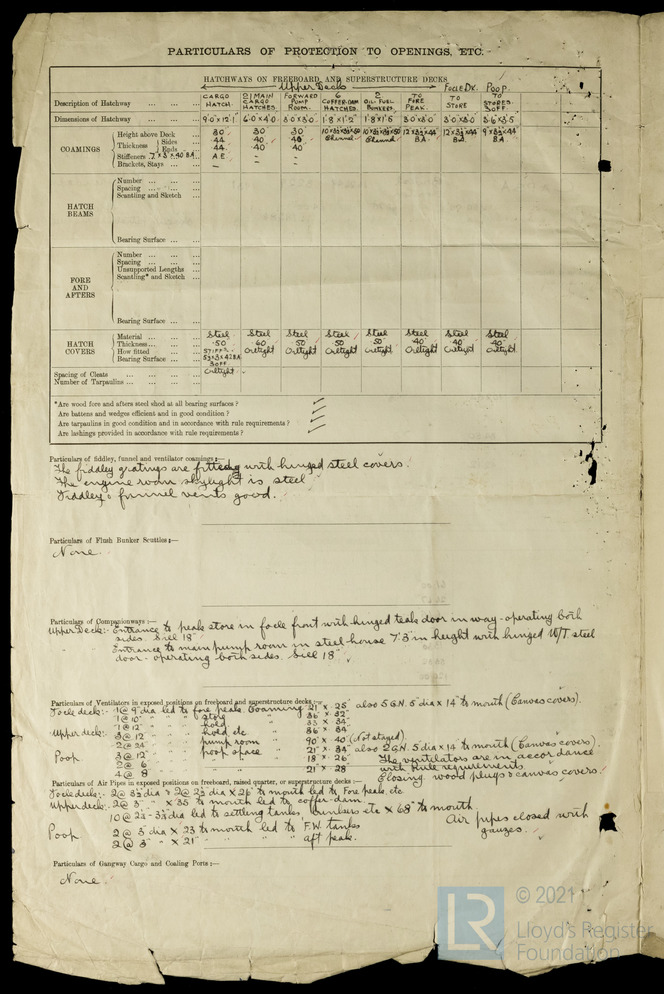 PARTICULARS OF PROTECTION TO OPENINGS, ETC.
HATCHWAYS ON FREEBOARD AND SUPERSTRUCTURE DECKS
Upper Deck Focle Dk. Poop
Description of Hatchway ... ... ... CARGO HATCH. 21 MAIN CARGO HATCHES. FORWARD PUMP ROOM. 6 COFFER-DAM HATCHES. 2 OIL FUEL BUNKERS. TO FORE PEAK. TO STORE TO STORES. 3 OFF
Dimensions of Hatchway ... ... ... 9'0 x 12'1" 6'0 x 4'0 3'0 x 3'0 1'8 x 1'2 1'8 x 1'5 3'0 x 3'0 3'0 x 3'0 3'6 x 3'5
COAMINGS
Height above Deck ... 30 30 30 10 x 3½ x 3½ x 50 10 x 3½ x 3½ x 50 12 x 3½ x 44 12 x 3½ x 44 9 x 3½ x 44
Thickness Sides ... 44 40 40 Channel Channel B.A. B.A. B.A.
Ends ... 44 40 40
Stiffeners 7 x 3 x 40 B.A. A.E. - -
Brackets, Stays ... ... - - -
HATCH BEAMS
Number ... ... ...
Spacing ... ... ...
Scantling and Sketch ...
Bearing Surface ... ...
FORE AND AFTERS
Number ... ... ...
Spacing ... ... ...
Unsupported Lengths ...
Scantling* and Sketch ...
Bearing Surface ... ...
HATCH COVERS
Material ... ... ... Steel Steel Steel Steel Steel Steel Steel Steel
Thickness ... ... .50 .60 .50 .50 50 .40 .40 40
How fitted ... ... STIFFS. Oiltight Oiltight Oiltight Oiltight Oiltight Oiltight Oiltight
Bearing Surface ... ... 5½ x 3 x 42 B.A. 3 OFF
Spacing of Cleats ... ... ... ... Oiltight
Number of Tarpaulins ... ... ... ...
*Are wood fore and afters steel shod at all bearing surfaces?
Are battens and wedges efficient and in good condition?
Are tarpaulins in good condition and in accordance with rule requirements?
Are lashings provided in accordance with rule requirements?
Particulars of fiddley, funnel and ventilator coamings:—
The fiddley gratings are fitted with hinged steel covers.
The engine room skylight is steel
Fiddley & funnel vents good.
Particulars of Flush Bunker Scuttles:—
None.
Particulars of Companionways:—
Upper Deck:- Entrance to peak store in focle front with hinged teak door in way - operating both
sides. Sill 18"
" Entrance to main pump room in steel house 7'3" in height with hinged W/T steel
door - operating both sides. Sill 18"
Particulars of Ventilators in exposed positions on freeboard and superstructure decks:—
Focle deck:- 1 @ 9" dia led to fore peak. Coaming 21" x 25 also 5 G.N. 5" dia x 14" to mouth (Canvas covers).
1 @ 10" " " " store " 36" x 32"
1 @ 12" " " " hold " 33" x 34"
Upper deck:- 3 @ 12" " " " hold etc " 36" x 34
2 @ 24" " " " pump room " 90" x 40 (Not stayed).
Poop 3 @ 12" " " " poop space " 21" x 34" also 2 G.N. 5 dia x 14" to mouth (Canvas covers).
2 @ 6 " " " " 18" x 26 The ventilators are in accordance
4 @ 8 " " " " 21" x 28 with rule requirements
Closing wood plugs & canvas covers.
Particulars of Air Pipes in exposed positions on freeboard, raised quarter, or superstructure decks:—
Focle deck:- 2 @ 3½ dia & 2 @ 2½ dia x 26" to mouth led to Fore peak etc
Upper deck:- 2 @ 3" " x 35 to mouth led to coffer-dam
10 @ 2½ - 3½ dia led to settling tanks, bunkers etc x 68" to mouth.
Air pipes closed with gauzes.
Poop 2 @ 3 dia x 23 to mouth led to F.W. tanks
2 @ 3" " x 21" " " " aft peak.
Particulars of Gangway Cargo and Coaling Ports:—
None.
© 2021
LR
Lloyd's Register
Foundation